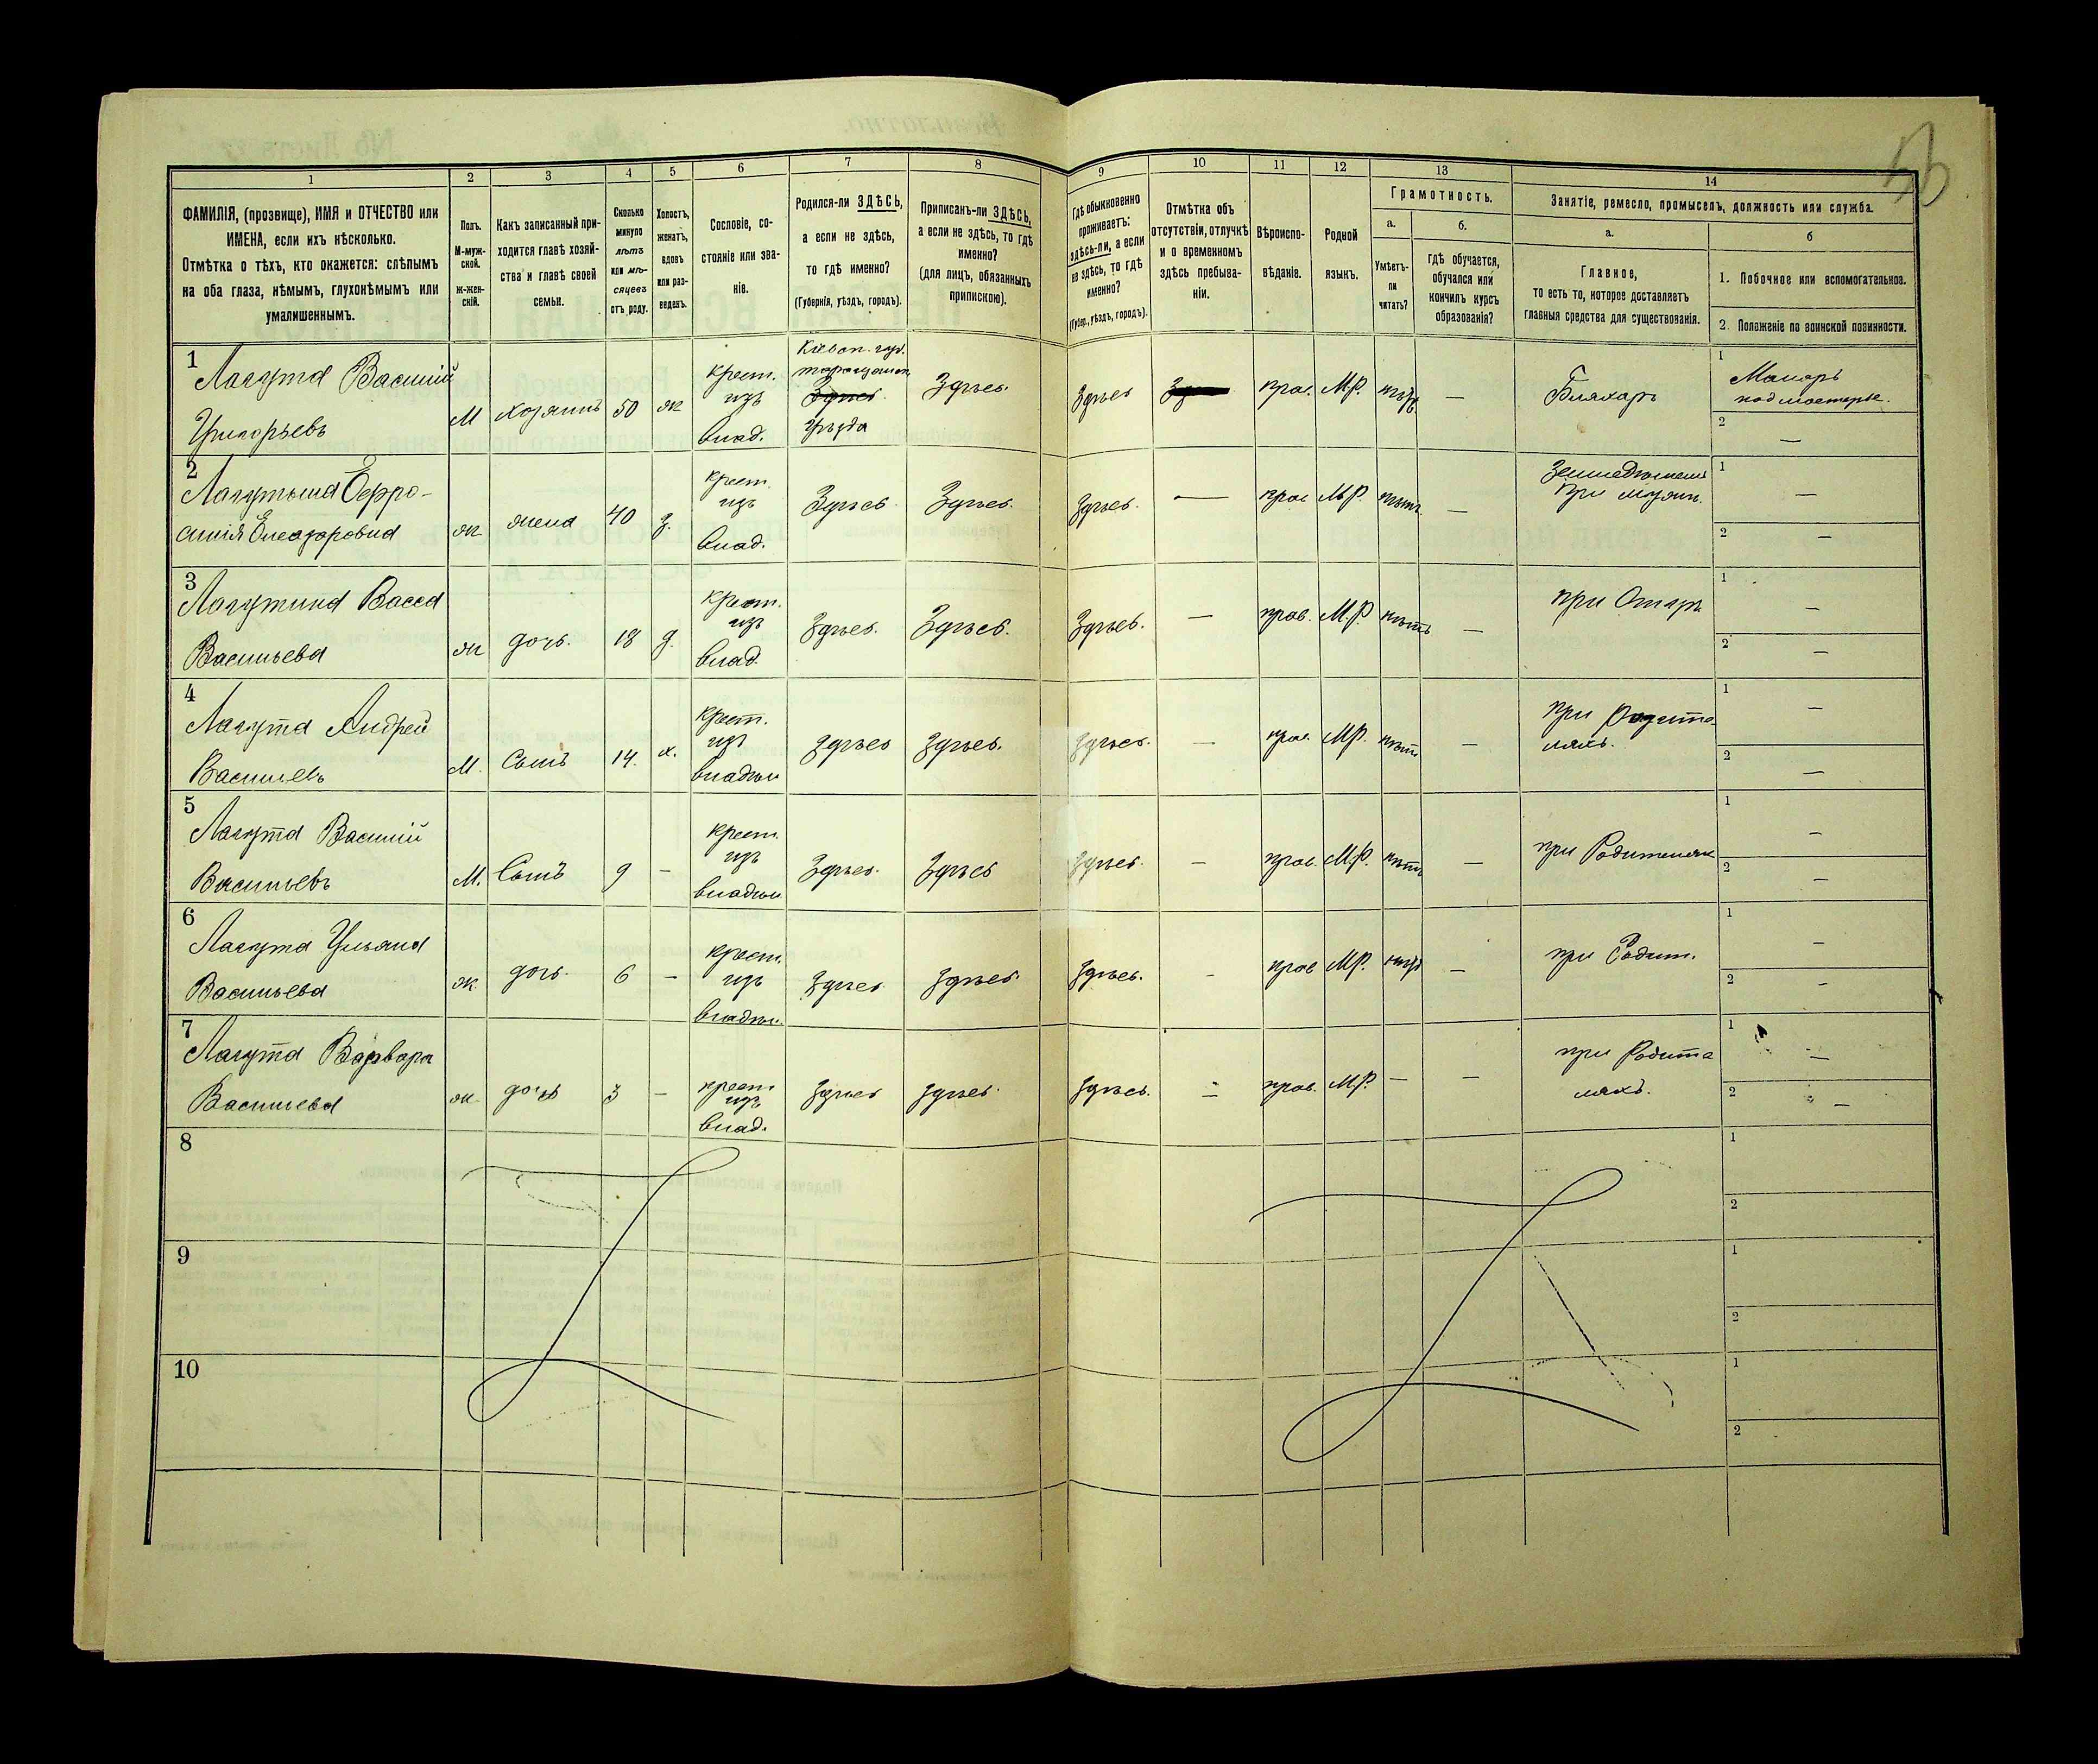 56
1 2 3 4 5 6 7 8 9 10 11 12 13 14
ФАМИЛІЯ, (прозвище), ИМЯ и ОТЧЕСТВО или
ИМЕНА, если ихъ нѣсколько.
Отмѣтка о тѣхъ, кто окажется: слѣпымъ
на оба глаза, нѣмымъ, глухонѣмымъ или
умалишеннымъ.
Полъ.
М-муж-
ской.
Ж-жен-
скій.
Какъ записанный при-
ходится главѣ хозяй-
ства и главѣ своей
семьи.
Сколько
минуло
лѣтъ
или мѣ-
сяцевъ
отъ роду.
Холостъ,
женатъ,
вдовъ
или раз-
веденъ.
Сословіе, со-
стояніе или зва-
ніе.
Родился-ли ЗДѢСЬ,
а если не здѣсь,
то гдѣ именно?
(Губернія, уѣздъ, городъ).
Приписанъ-ли ЗДѢСЬ,
а если не здѣсь, то гдѣ
именно?
(для лицъ, обязанныхъ
припискою).
Гдѣ обыкновенно
проживаетъ:
здѣсь-ли, а если
не здѣсь, то гдѣ
именно?
(Губер., уѣздъ, городъ).
Отмѣтка объ
отсутствіи, отлучкѣ
и о временномъ
здѣсь пребыва-
ніи.
Вѣроиспо-
вѣданіе.
Родной
языкъ.
Грамотность.
а.
Умѣетъ-
ли
читать?
б.
гдѣ обучается,
обучался или
кончилъ курсъ
образованія?
Занятіе, ремесло, промыселъ, должность или служба.
а.
Главное,
то есть то, которое доставляетъ
главныя средства для существованія.
б
1. Побочное или вспомогательное.
2. Положеніе по воинской повинности.
1
Лагута Василій
Григорьевъ
М хозяинъ 50 ж
крест.
изъ
влад.
Кіевск. губ.
Здѣсь
уѣзда
Здѣсь. Здѣсь прав. М.Р. нѣтъ —
Бляхарь
1 Маляръ
2 —
2
Лагутына Евфро-
синія Елеазаровна
ж жена 40 з.
крест.
изъ
влад.
Здѣсь Здѣсь. Здѣсь. — прав М.Р. нѣтъ —
при мужѣ.
1 —
2 —
3
Лагутина Васса
Васильева
ж дочь. 18 д.
крест.
изъ
влад.
Здѣсь. Здѣсь. Здѣсь. — прав. М.Р. нѣтъ —
при Отцѣ
1 —
2 —
4
Лагута Андрей
Васильевъ
М. Сынъ 14. х.
крест.
изъ
владѣл
Здѣсь Здѣсь. Здѣсь. — прав. М.Р. нѣтъ —
при Родите-
ляхъ.
1 —
2 —
5
Лагута Василій
Васильевъ
М. Сынъ 9 —
крест.
изъ
владѣл
Здѣсь. Здѣсь Здѣсь. — прав. М.Р. нѣтъ —
при Родителях
1 —
2 —
6
Лагута Ульяна
Васильева
ж. дочь. 6 —
крест.
изъ
владѣл.
Здѣсь Здѣсь Здѣсь. — прав М.Р. нѣтъ —
при Родит.
1 —
2 —
7
Лагута Варвара
Васильева
ж. дочь 3 —
крест
изъ
влад.
Здѣсь Здѣсь. Здѣсь. — прав. М.Р. — —
при Родите
ляхъ.
1 —
2 —
8
1
2
9
1
2
10
1
2